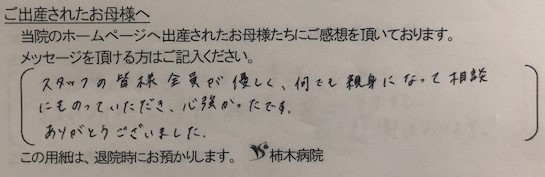 ご出産されたお母様へ
当院のホームページへ出産されたお母様たちにご感想を頂いております。
メッセージを頂ける方はご記入ください。
スタッフの皆様全員が優しく、何でも親身になって相談
にものっていただき、心強かったです。
ありがとうございました。
この用紙は、退院時にお預かりします。 柿木病院